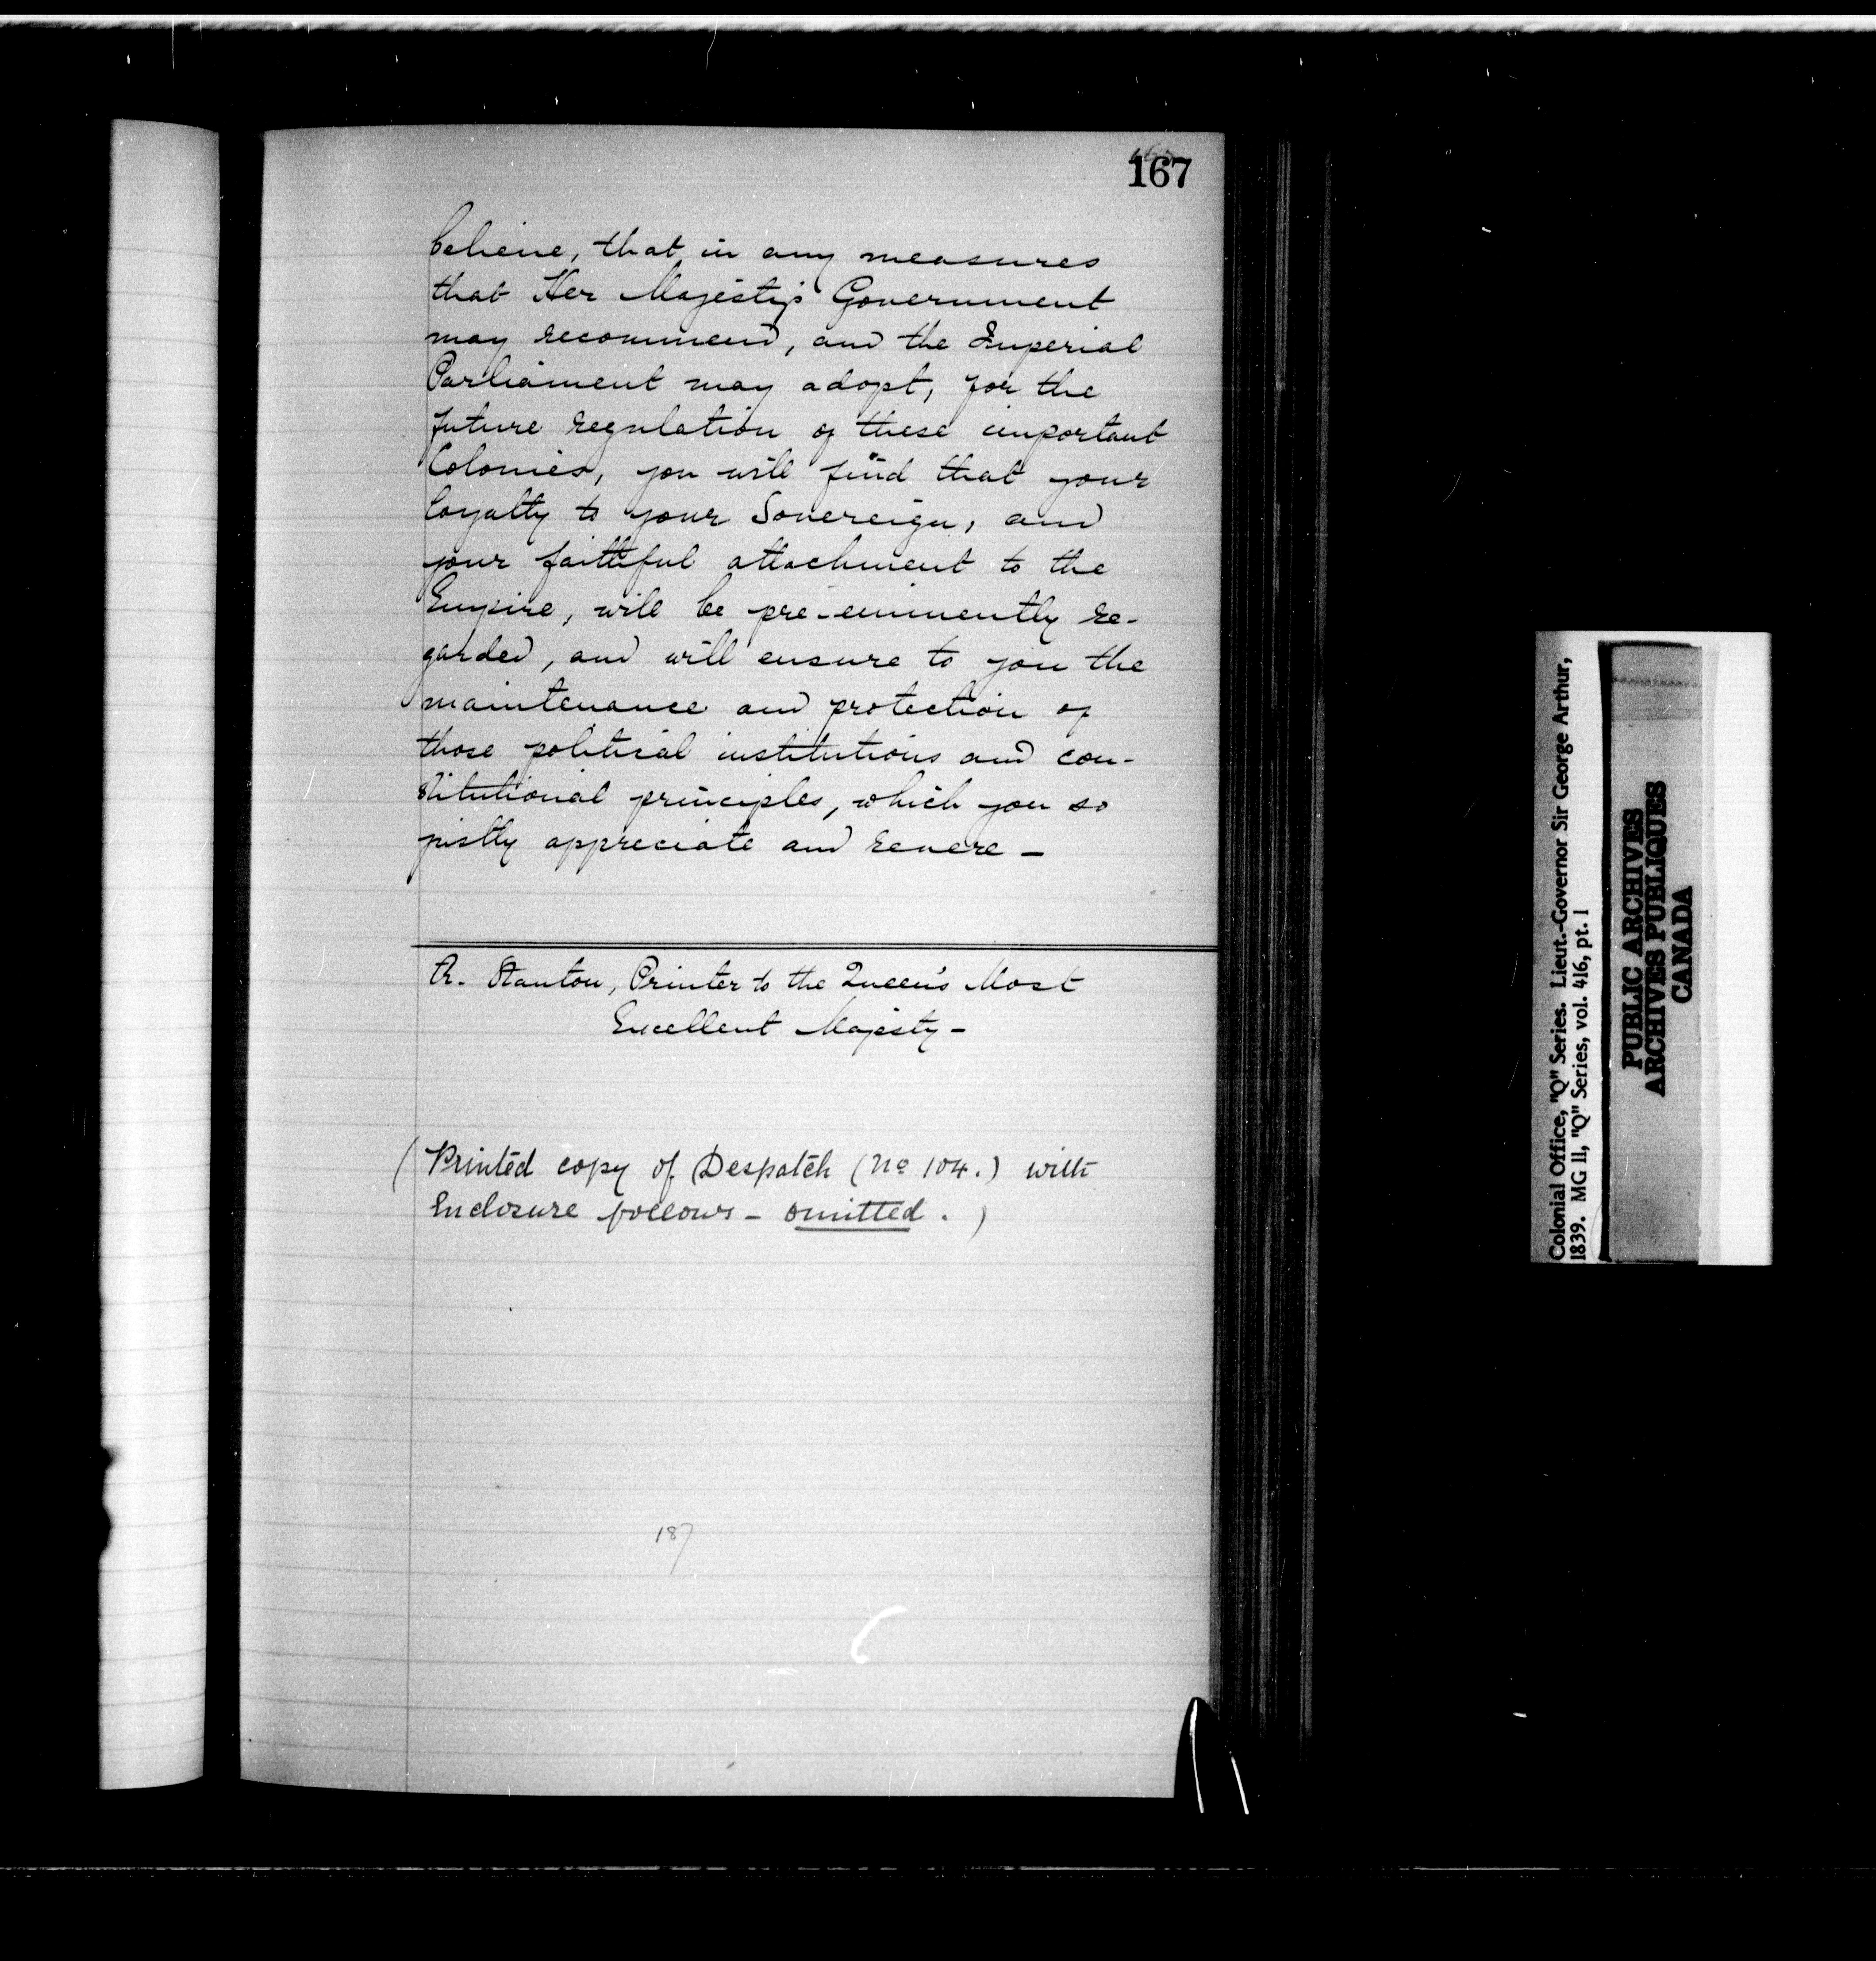 167
believe, that in any measures
that Her Majesty's Government
may recommend, and the Imperial
Parliament may adopt, for the
future regulation of these important
Colonies, you will find that your
loyalty to your Sovereign, and
your faithful attachment to the
Empire, will be pre-eminently re-
garded, and will ensure to you the
maintenance and protection of
those political institutions and con-
stitutional principles, which you so
justly appreciate and revere -
R. Stanton, Printer to the Queen's Most
Excellent Majesty -
(Printed copy of Despatch (No 104.) with
Enclosure follows - omitted.)
187
Colonial Office, "Q" Series. Lieut.-Governor Sir George Arthur,
1839. MG 11, "Q" Series, vol. 416, pt. 1
PUBLIC ARCHIVES
ARCHIVES PUBLIQUES
CANADA